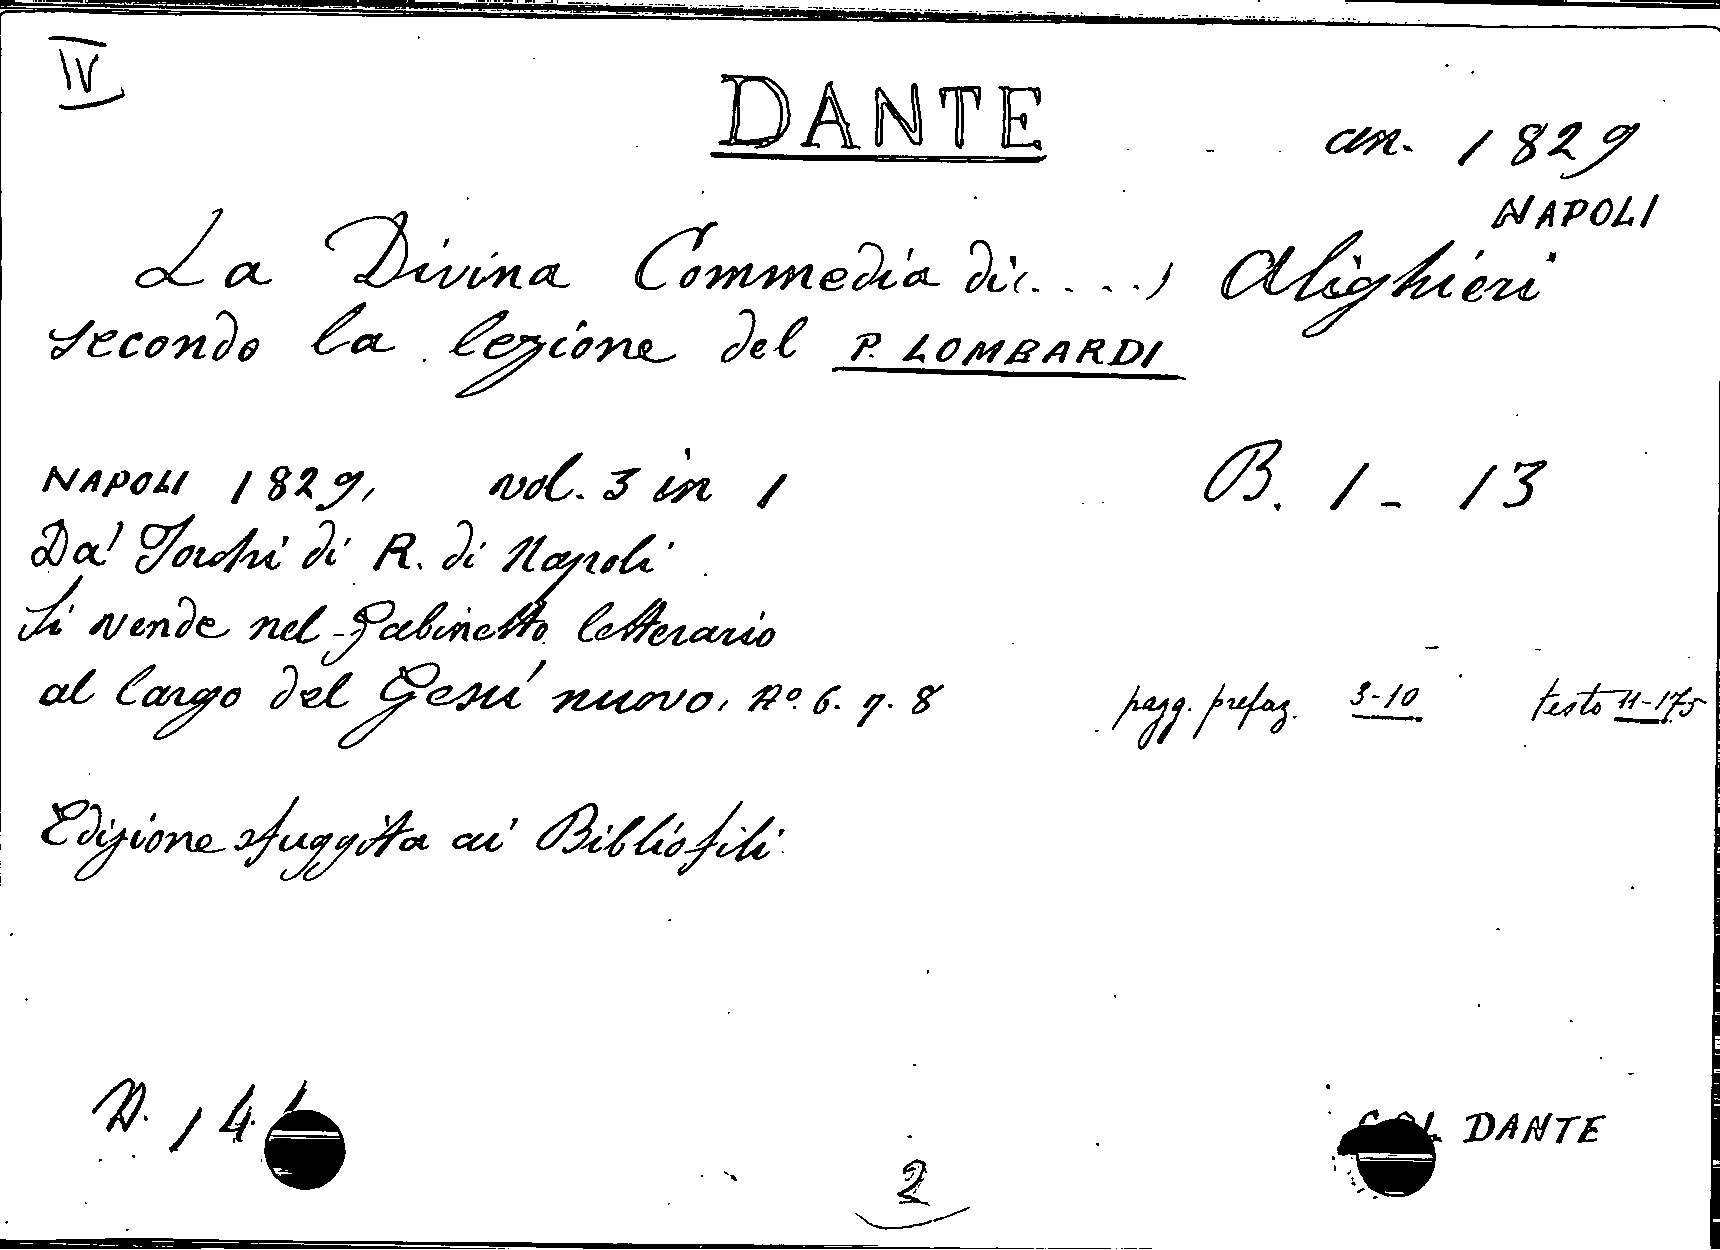 IV
DANTE
an. 1829
NAPOLI
La Divina Commedia di (....) Alighieri
secondo la lezione del P. LOMBARDI
NAPOLI 1829, vol. 3 in 1
B. 1 - 13
Da' Torchi di R. di Napoli
Si vende nel Gabinetto letterario
al largo del Gesù nuovo, No. 6. 7. 8
pagg. prefaz. 3-10 testo 11-175
Edizione sfuggita ai Bibliofili
N. 14
COL DANTE
2